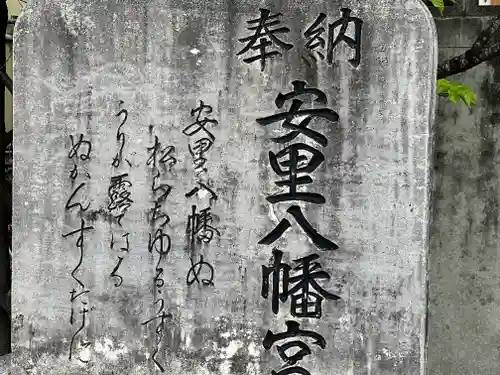 奉納
安里八幡宮
安里八幡ぬ
松らちゆるうすく
うりが露でる
ぬかんすくたげに